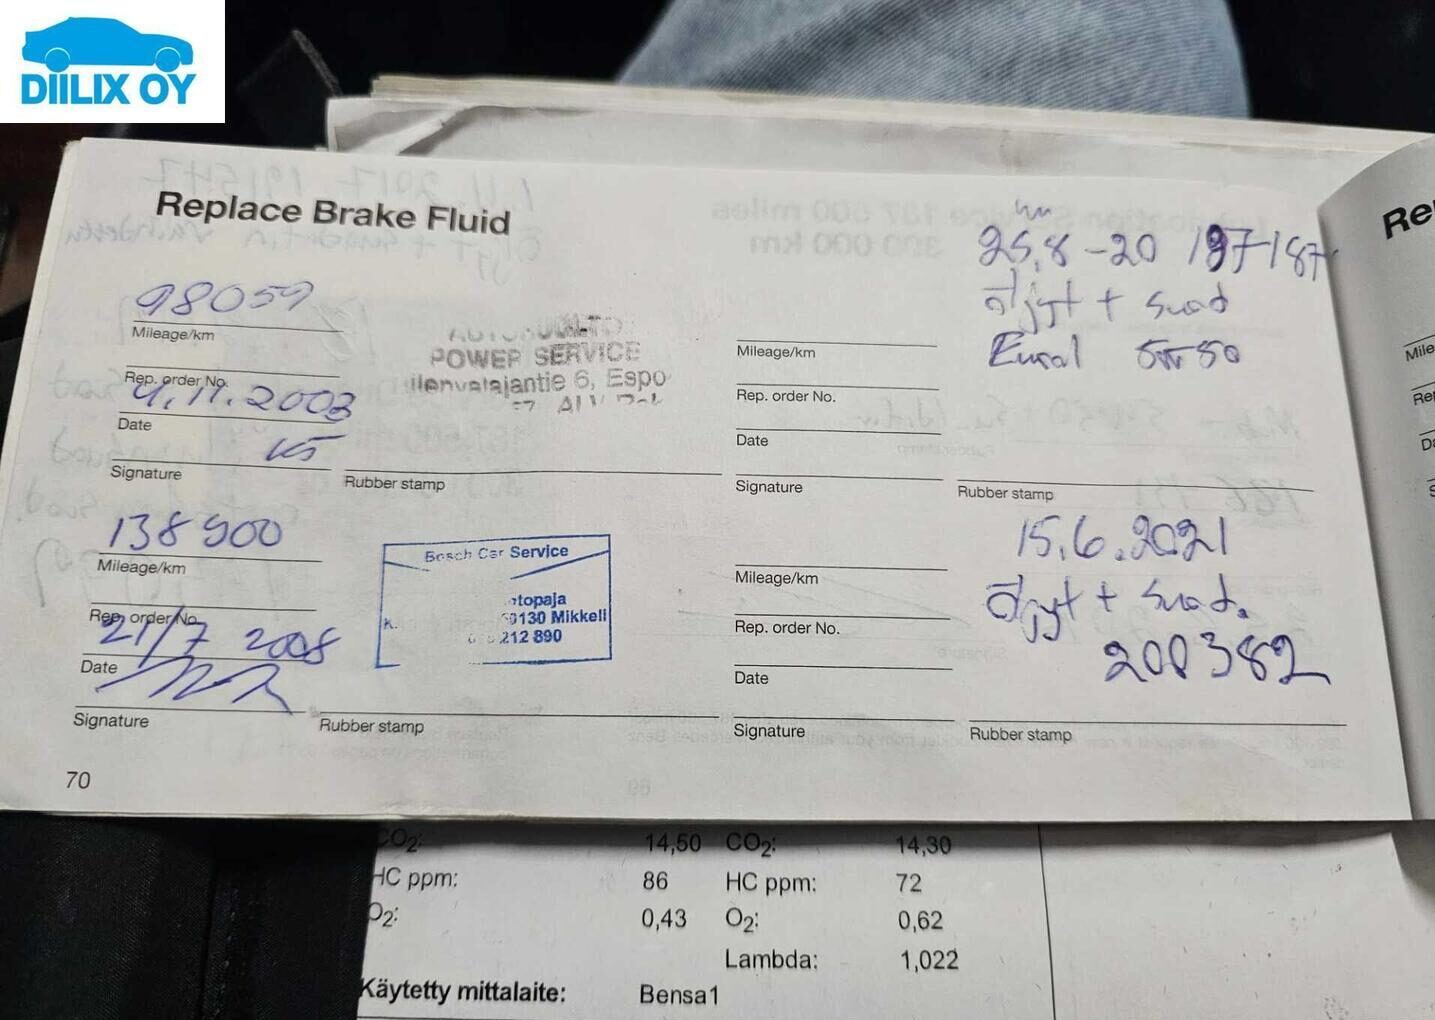 DIILIX OY
Replace Brake Fluid
98059
Mileage/km
Rep. order No.
4.11.2003
Date
Signature
POWER SERVICE
6, Espo
Rubber stamp
138 900
Mileage/km
Rep. order No.
21/7 2008
Date
Signature
Bosch Car Service
K.
topaja
0130 Mikkeli
212 890
Rubber stamp
Mileage/km
Rep. order No.
Date
Signature
25.8-20 197187
Öljyt + suod
5W50
Rubber stamp
Mileage/km
Rep. order No.
Date
Signature
15.6.2021
Öljyt + suod.
200382
Rubber stamp
70
Re
Mile
Re
Da
S
CO2: 14,50 CO2: 14,30
HC ppm: 86 HC ppm: 72
O2: 0,43 O2: 0,62
Lambda: 1,022
Käytetty mittalaite: Bensa1